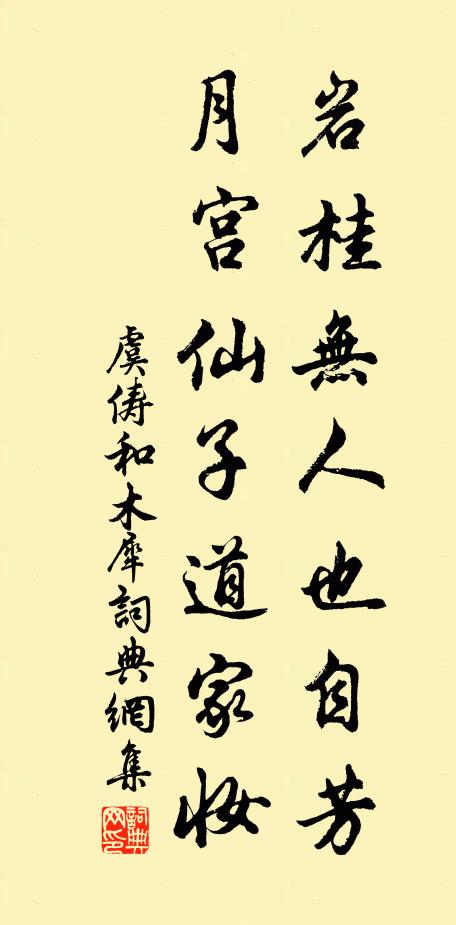 岩桂無人也自芳
月宫仙子道家妝
虞俦和木犀詞典網集
詞典网印